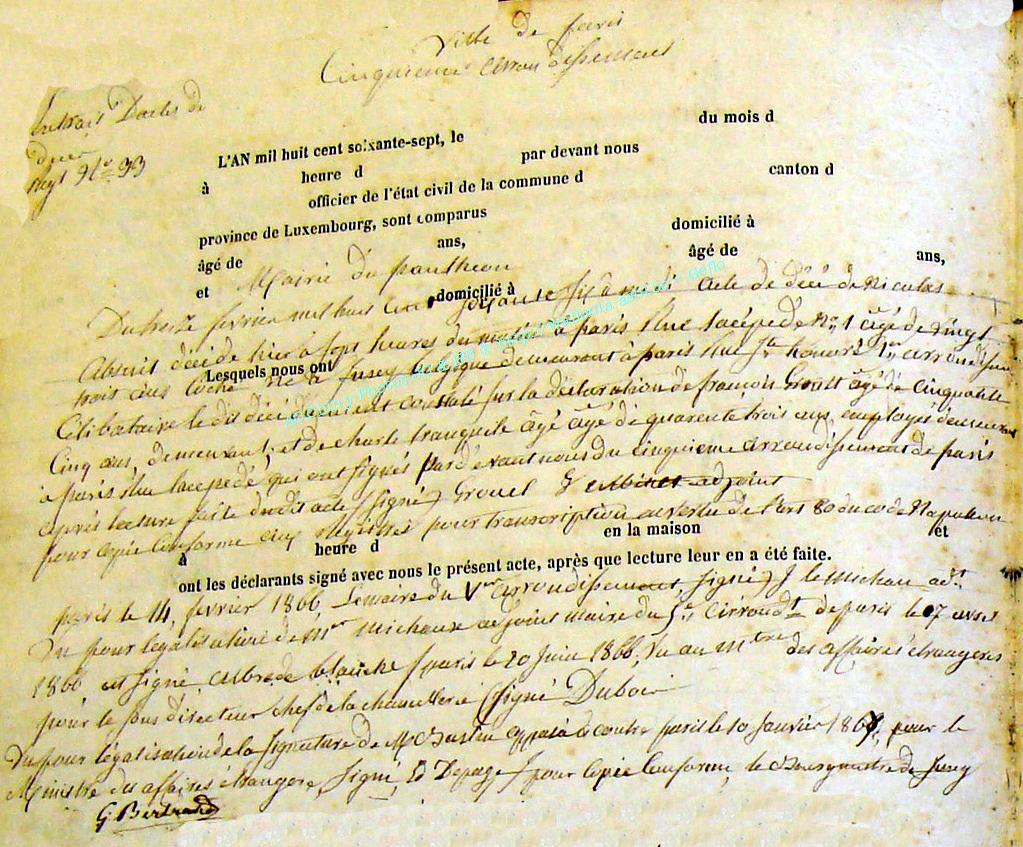 Ville de paris
Cinquieme arrondissement
Extrait Dactes de
deces
Regt No 93
L'AN mil huit cent soixante-sept, le du mois d
à heure d par devant nous
officier de l'état civil de la commune d canton d
province de Luxembourg, sont comparus
âgé de ans, domicilié à
et Mairie du pantheon âgé de ans,
domicilié à
Du treize fevrier mil huit cent soixante six à midi acte de décé de Nicolas
décédé hier a sept heures du matin a paris Rue lacépède No 1 agé de vingt
Lesquels nous ont
trois ans né à Jusey belgique demeurant à paris Rue St honoré 1er arrondissem
Célibataire le dit décé constaté sur la déclaration de françois Grouel âgé de Cinquante
Cinq ans, demeurant et de charle tranquile âgé âgé de quarente trois ans employés demeurant
à paris Rue lacepède qui ont signés pardevant nous du cinquieme arrondissement de paris
après lecture faite dudit acte (signé) Grouel adjoint
pour copie Conforme pour transcription en vertu de l'art 80 du code Napoleon
à heure d en la maison et
ont les déclarants signé avec nous le présent acte, après que lecture leur en a été faite.
paris le 14, fevrier 1866, Lemaire du Vme arrondissement, signé) J le michau adt
Vu pour légalisation de Mr michaux adjoint maire du 5e arrondt de paris le 07 avril
1866 signé paris le 20 Juin 1866, Vu au mtre des affaires étrangeres
pour le sous directeur chef de la chancellerie (signé Dubois
Vu pour légalisation de la signature de Mr apposée ci contre paris le 10 Janvier 1867, pour le
Ministre des affaires étrangere, signé, Ed Depage / pour Copie Conforme, le Bourgmestre de Jusey
G. Bertrand